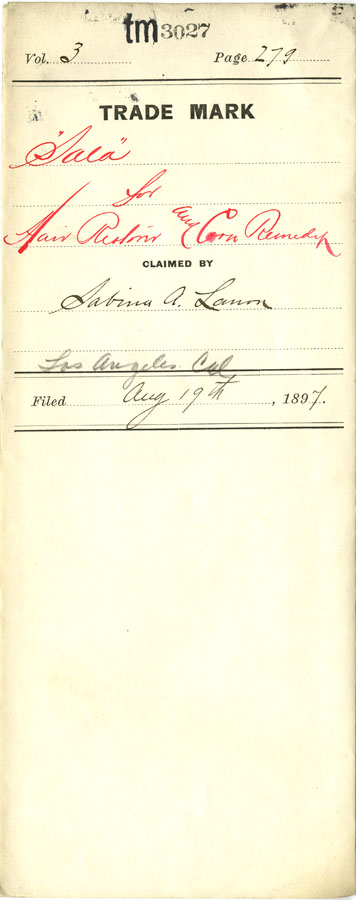 tm 3027
Vol. 3 Page 279
TRADE MARK
"Sala"
for
Hair Restorer and Corn Remedy
CLAIMED BY
Sabina A. Lamon
Los Angeles Cal
Filed Aug 19th, 1897.